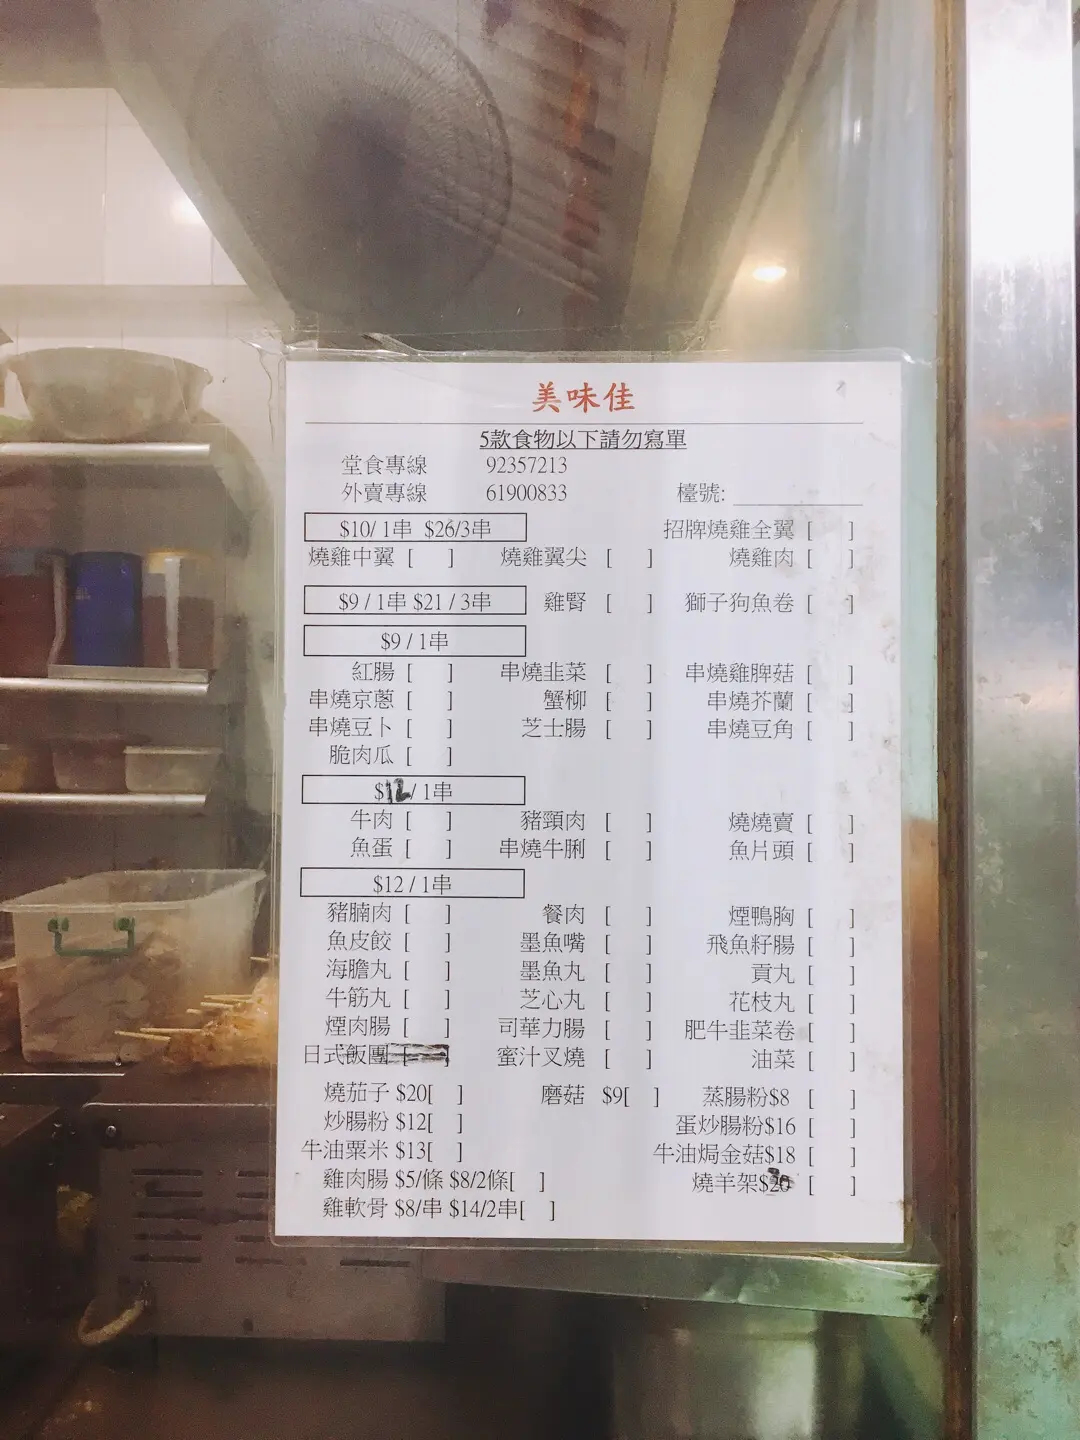 美味佳
5款食物以下請勿寫單
堂食專線 92357213
外賣專線 61900833 檯號:
$10/ 1串 $26/3串 招牌燒雞全翼 [ ]
燒雞中翼 [ ] 燒雞翼尖 [ ] 燒雞肉 [ ]
$9 / 1串 $21 / 3串 雞腎 [ ] 獅子狗魚卷 [ ]
$9 / 1串
紅腸 [ ] 串燒韭菜 [ ] 串燒雞脾菇 [ ]
串燒京蔥 [ ] 蟹柳 [ ] 串燒芥蘭 [ ]
串燒豆卜 [ ] 芝士腸 [ ] 串燒豆角 [ ]
脆肉瓜 [ ]
$12/ 1串
牛肉 [ ] 豬頸肉 [ ] 燒燒賣 [ ]
魚蛋 [ ] 串燒牛脷 [ ] 魚片頭 [ ]
$12 / 1串
豬腩肉 [ ] 餐肉 [ ] 煙鴨胸 [ ]
魚皮餃 [ ] 墨魚嘴 [ ] 飛魚籽腸 [ ]
海膽丸 [ ] 墨魚丸 [ ] 貢丸 [ ]
牛筋丸 [ ] 芝心丸 [ ] 花枝丸 [ ]
煙肉腸 [ ] 司華力腸 [ ] 肥牛韭菜卷 [ ]
日式飯團 蜜汁叉燒 [ ] 油菜 [ ]
燒茄子 $20[ ] 磨菇 $9[ ] 蒸腸粉$8 [ ]
炒腸粉 $12[ ] 蛋炒腸粉$16 [ ]
牛油粟米 $13[ ] 牛油焗金菇$18 [ ]
雞肉腸 $5/條 $8/2條[ ] 燒羊架 [ ]
雞軟骨 $8/串 $14/2串[ ]